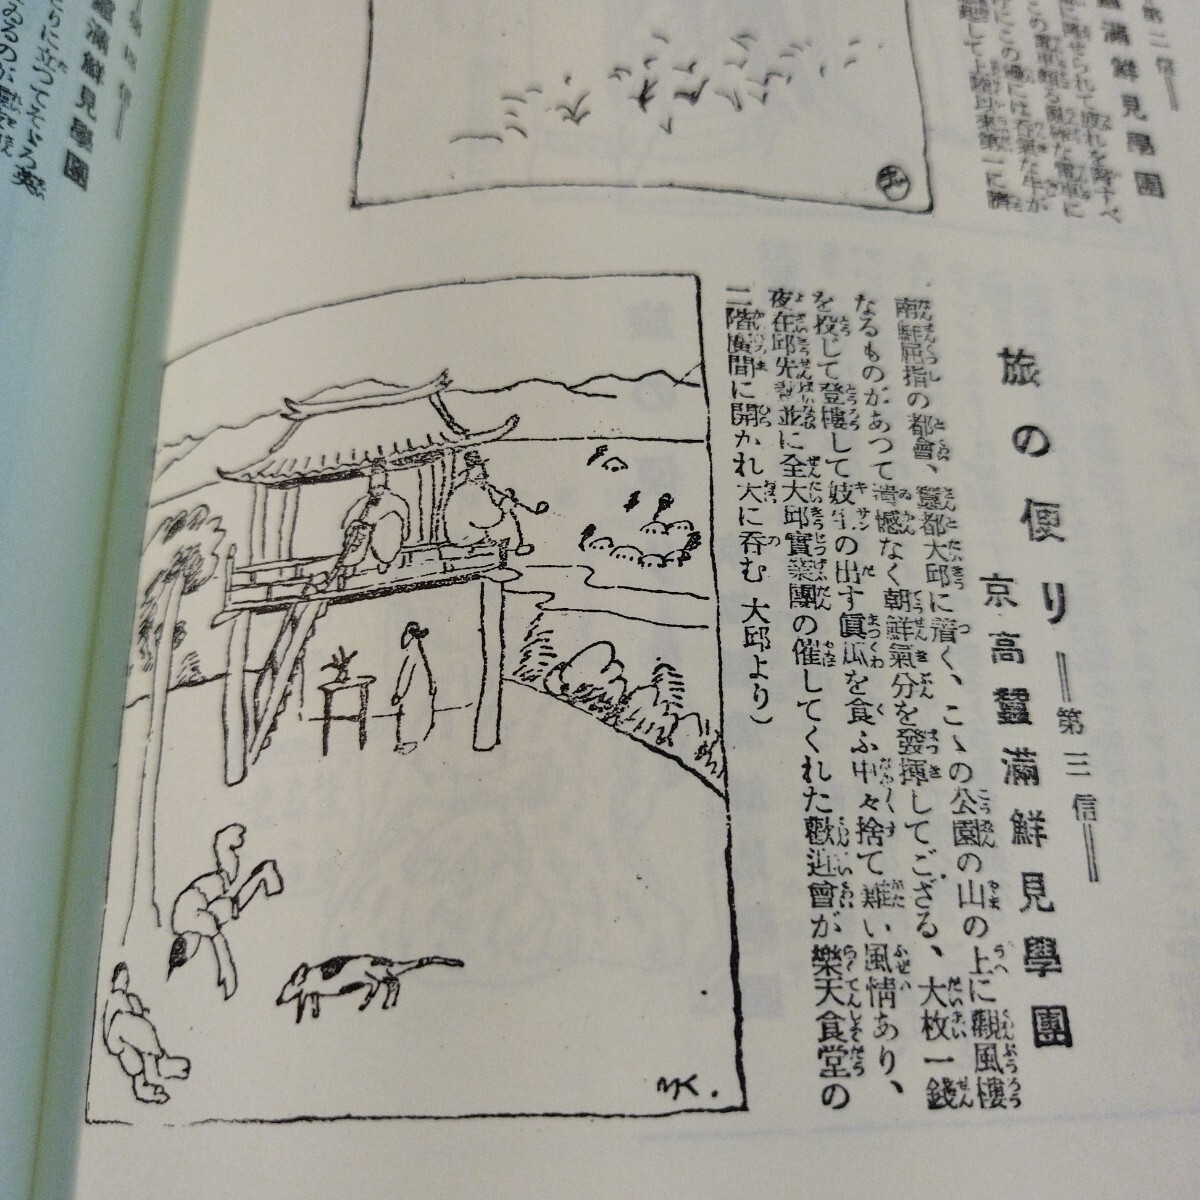 第二信
滿鮮見學團
旅の便り ＝第三信＝
京高蠶滿鮮見學團
南鮮屈指の都會、蠶都大邱に着く、こゝの公園の山の上に觀風樓
なるものがあつて遺憾なく朝鮮氣分を發揮してござる、大枚一錢
を投じて登樓して妓生の出す眞瓜を食ふ中々捨て難い風情あり、
夜在邱先輩並に全大邱實業團の催してくれた歡迎會が樂天食堂の
二階廣間に開かれ大に呑む 大邱より)
蠶滿鮮見學團
りに立つてそゞろ英
ゐるのが